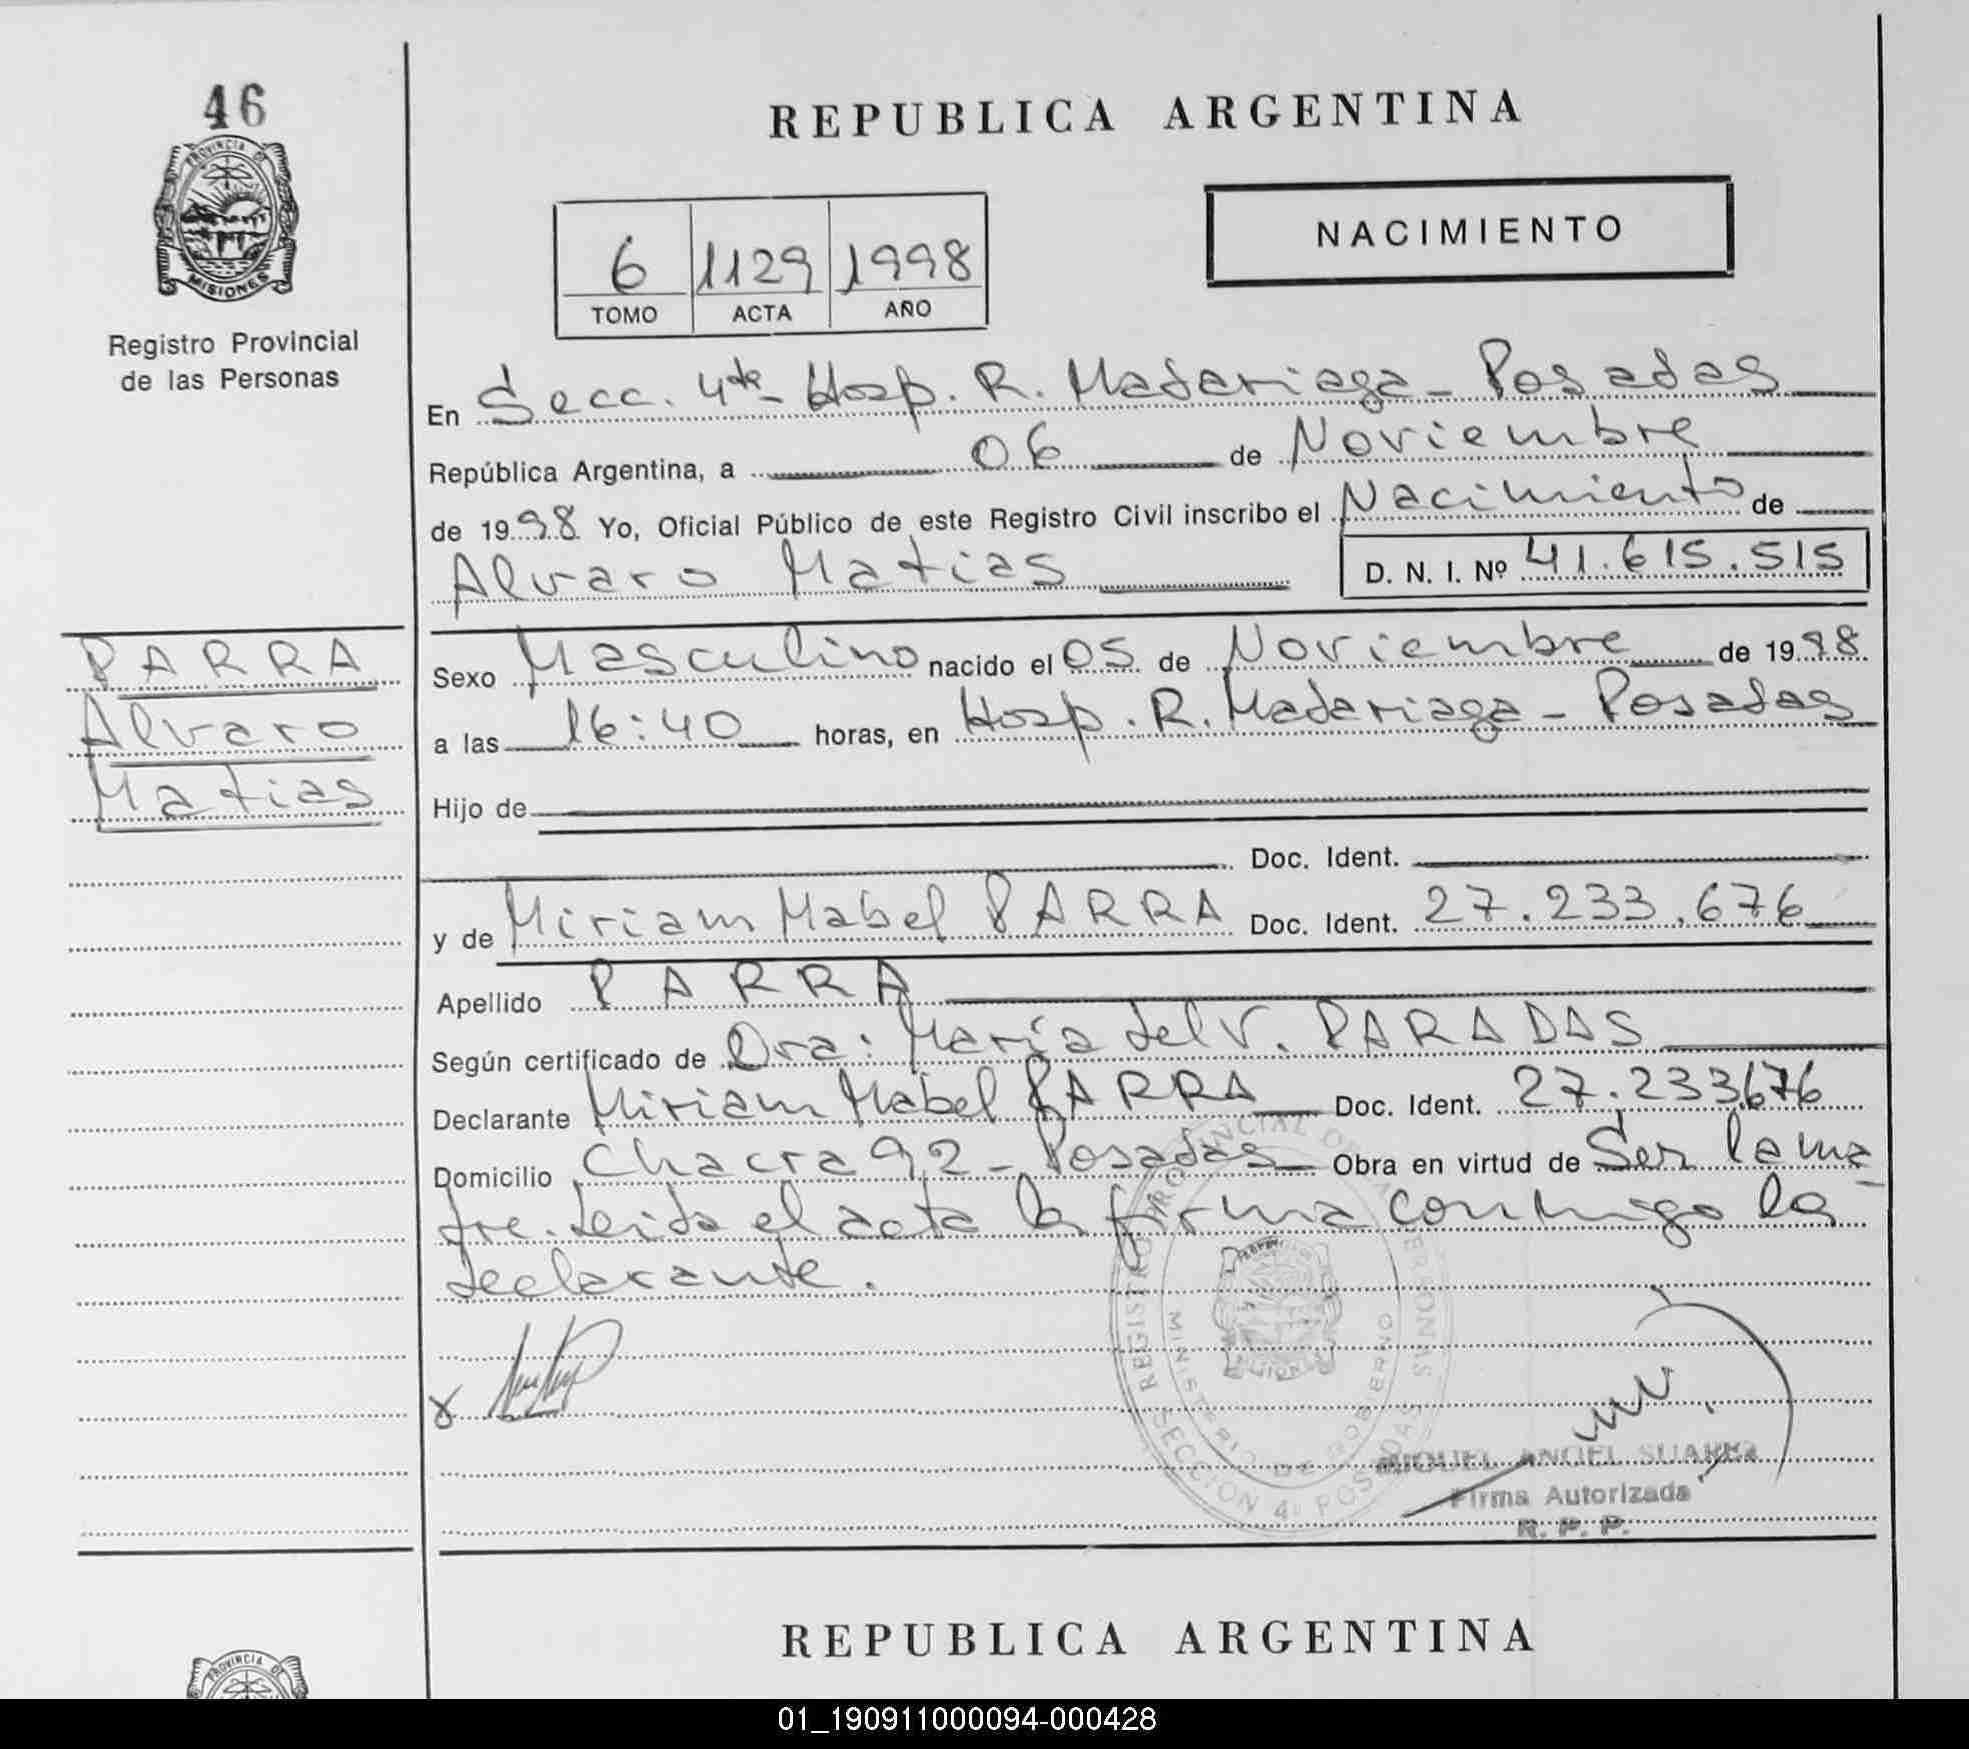 46
PROVINCIA DE
MISIONES
Registro Provincial
de las Personas
REPUBLICA ARGENTINA
NACIMIENTO
6 1129 1998
TOMO ACTA AÑO
En Secc. 4ta Hosp. R. Madariaga - Posadas
República Argentina, a 06 de Noviembre
de 1998 Yo, Oficial Público de este Registro Civil inscribo el Nacimiento de
Alvaro Matias D. N. I. Nº 41.615.515
PARRA
Alvaro
Matias
Sexo Masculino nacido el 05 de Noviembre de 1998
a las 16:40 horas, en Hosp. R. Madariaga - Posadas
Hijo de
Doc. Ident.
y de Miriam Mabel PARRA Doc. Ident. 27.233.676
Apellido PARRA
Según certificado de Dra: María del V. PARADAS
Declarante Miriam Mabel PARRA Doc. Ident. 27.233.676
Domicilio Chacra 92 - Posadas Obra en virtud de Ser la ma-
dre. Leida el acta la firma conmigo la
declarante.
REGISTRO PROVINCIAL DE LAS PERSONAS
MINISTERIO DE GOBIERNO
SECCION 4ª POSADAS
MIGUEL ANGEL SUAREZ
Firma Autorizada
R. P. P.
REPUBLICA ARGENTINA
PROVINCIA DE
01_190911000094-000428